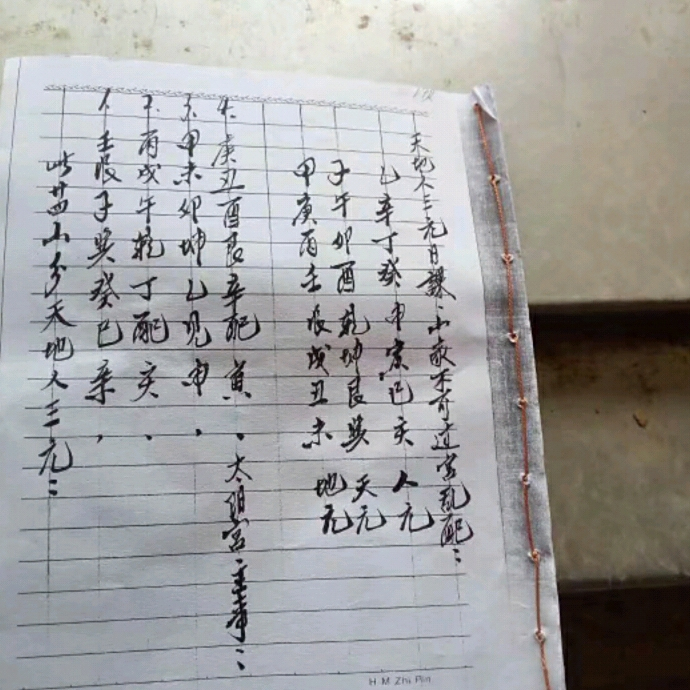 天地人三元日課山家不可逆宮亂配：
乙辛丁癸申寅巳亥 人元
子午卯酉乾坤艮巽 天元
甲庚丙壬辰戌丑未 地元
庚丑酉艮辛配寅、太阳宮
甲未卯坤乙見申、
丙戌午乾丁配亥、
壬辰子巽癸巳亲、
此廿四山分天地人三元：
H M Zhi Pin